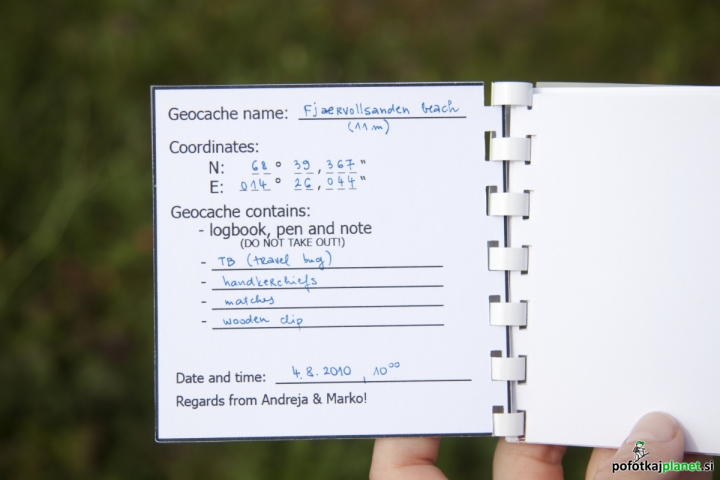 Geocache name: Fjaervollsanden beach
(11m)
Coordinates:
N: 68° 39,367"
E: 014° 26,044"
Geocache contains:
- logbook, pen and note
(DO NOT TAKE OUT!)
- TB (travel bug)
- handkerchiefs
- matches
- wooden clip
Date and time: 4.8.2010, 10⁰⁰
Regards from Andreja & Marko!
pofotkajplanet.si